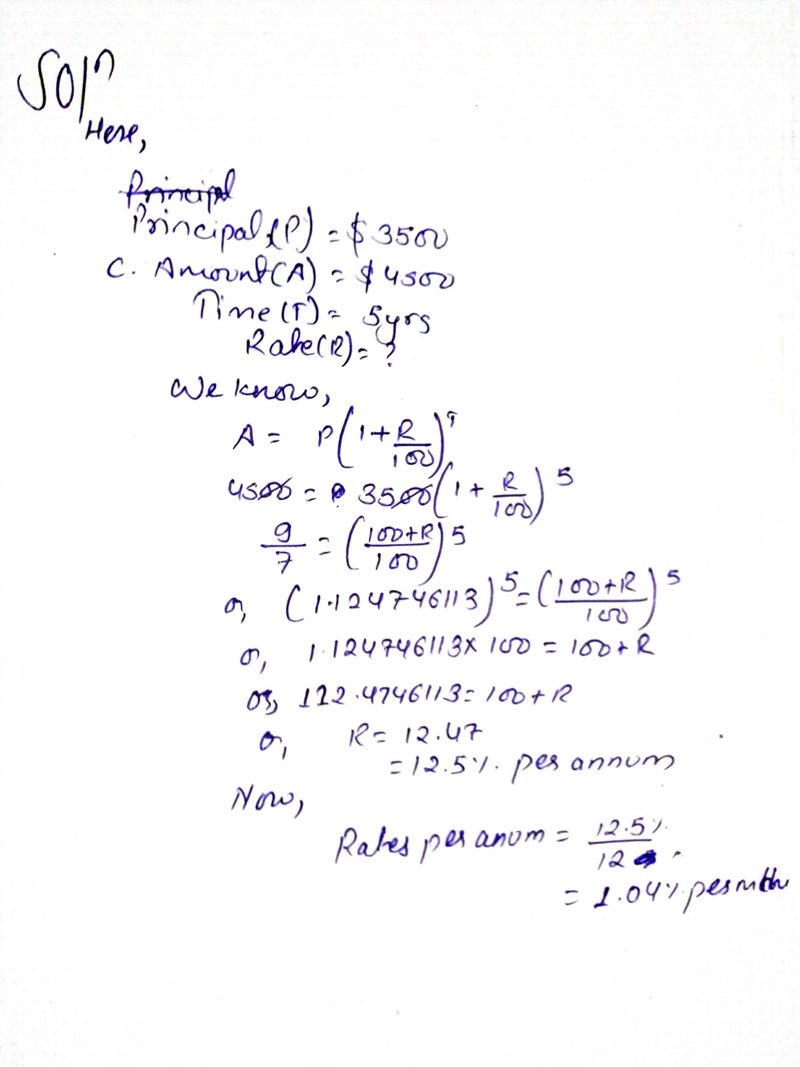 Solⁿ
Here,
Principal
Principal(P) = $ 3500
C. Amount(A) = $ 4500
Time(T) = 5yrs
Rate(R) = ?
We know,
A = P(1+R/100)ᵀ
4500 = 3500(1+R/100)^5
9/7 = (100+R/100)^5
or, (1.124746113)^5 = (100+R/100)^5
or, 1.124746113×100 = 100+R
or, 112.4746113 = 100+R
or, R = 12.47
= 12.5% per annum
Now,
Rates per anum = 12.5%/12
= 1.04% per mth